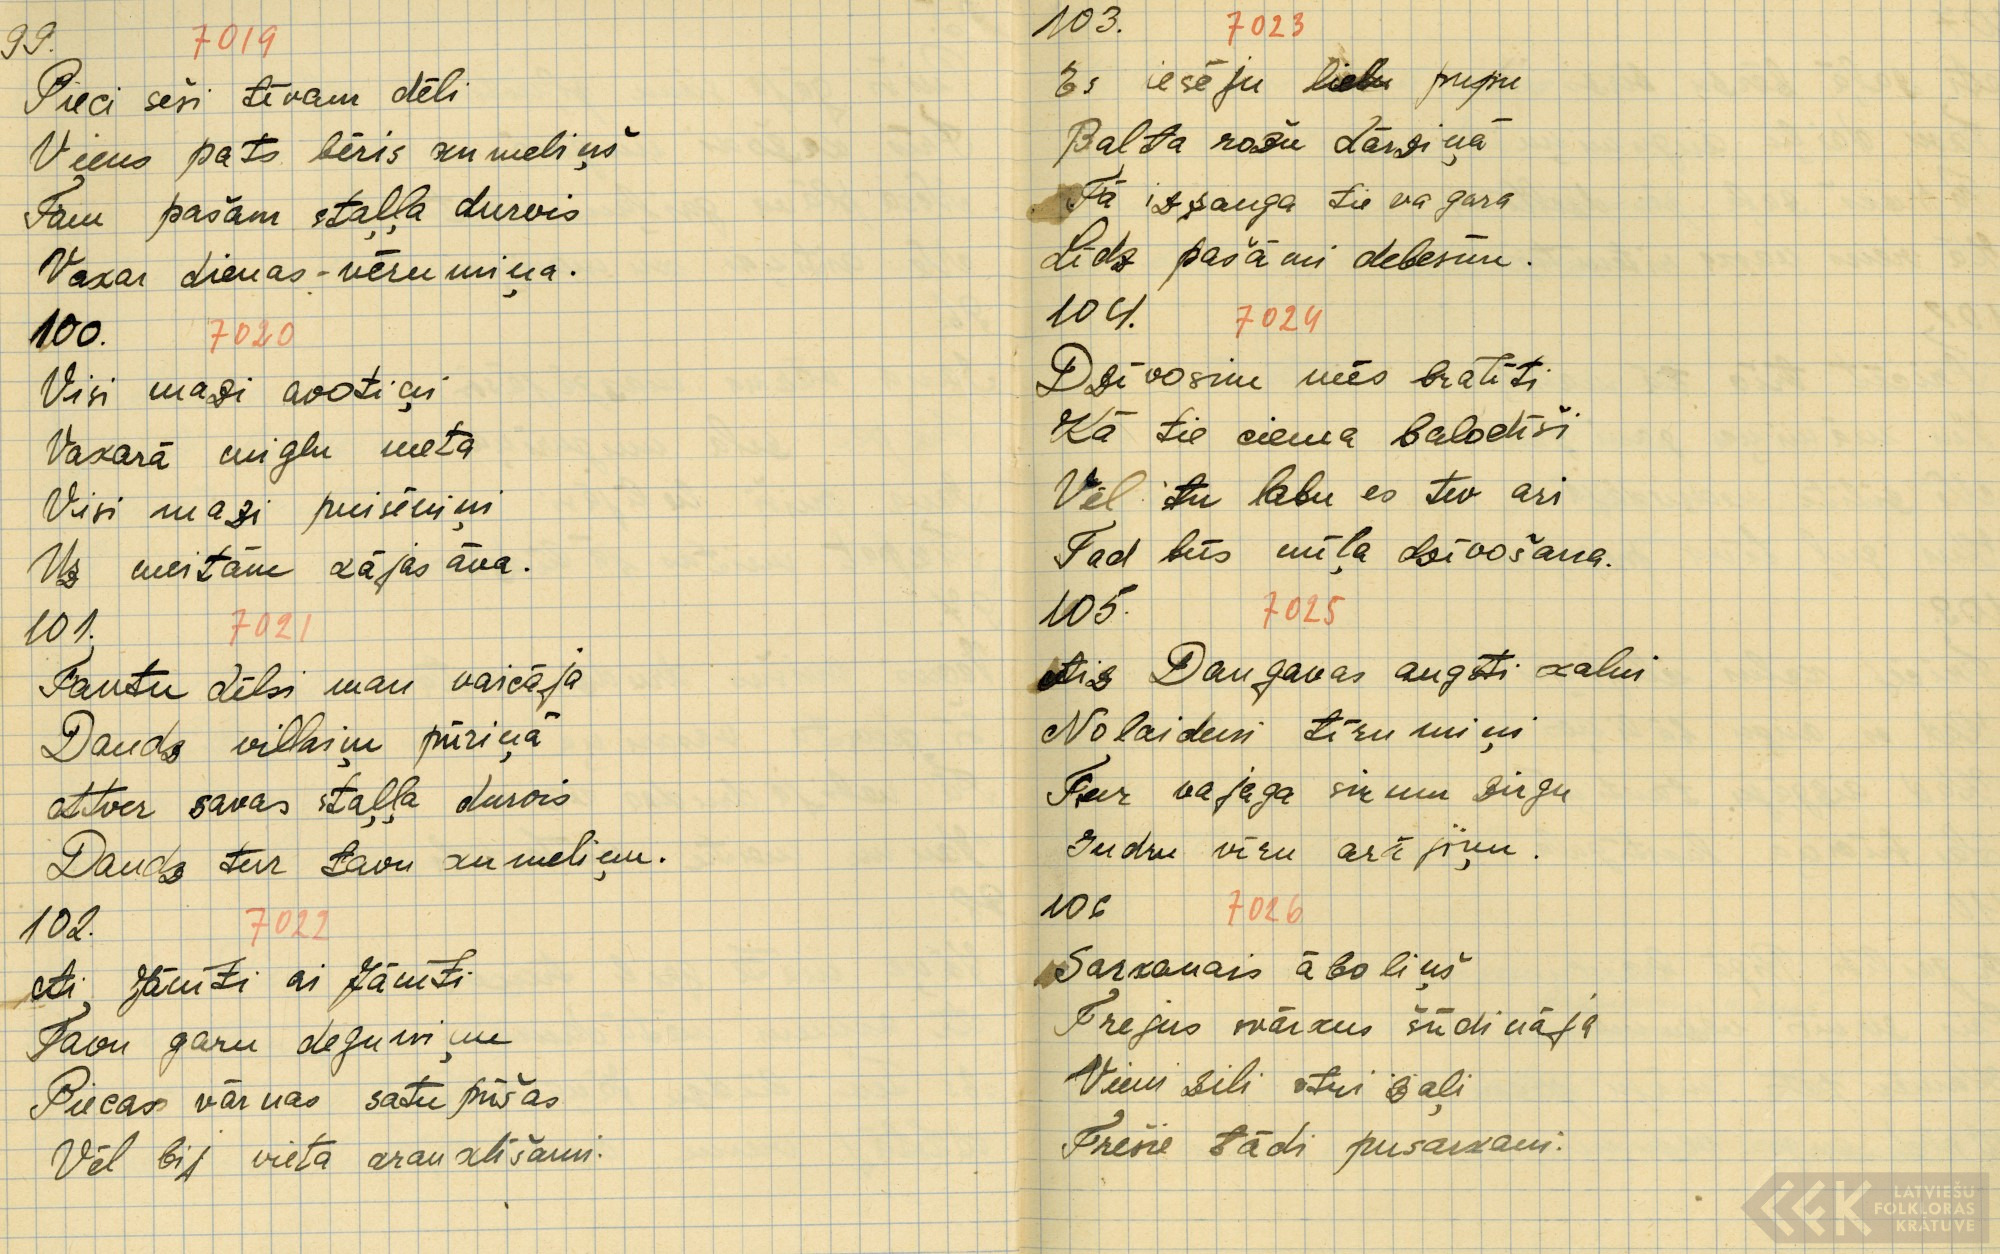 99. 7019
Pieci seši tēvam dēli
Viens pats bēris kumeliņš
Tam pašam staļļa durvis
Vakar dienas-vērumiņa.
100. 7020
Visi mazi avotiņi
Vakarā miglu meta
Visi mazi puisēniņi
Uz meitām kājas āva.
101. 7021
Tautu dēlsi man vaicāja
Daudz villaiņu pūriņā
Atver savas staļļa durvis
Daudz tur tavu kumeliņu.
102. 7022
Ai, Jānīti ai Jānīti
Tavu garu deguniņu
Piecas vārnas satupūšas
Vēl bij vieta krauklīšami.
103. 7023
Es iesēju lielu pupu
Balta rožu dārziņā
Tā izauga tieva gara
Līdz pašāmi debesīm.
104. 7024
Dzīvosim mēs brālīti
Kā tie ciema balodīši
Vēl tu labu es tev ari
Tad būs mīļa dzīvošana.
105. 7025
Aiz Daugavas augsti kalni
Nolaideni tīrumiņi
Tur vajaga sirmu zirgu
Gudru vīru arājiņu.
106 7026
Sarkanais āboliņš
Trejus svārkus šūdināja
Vieni zili otri zaļi
Trešie tādi pusarkani.
LATVIEŠU
FOLKLORAS
KRĀTUVE